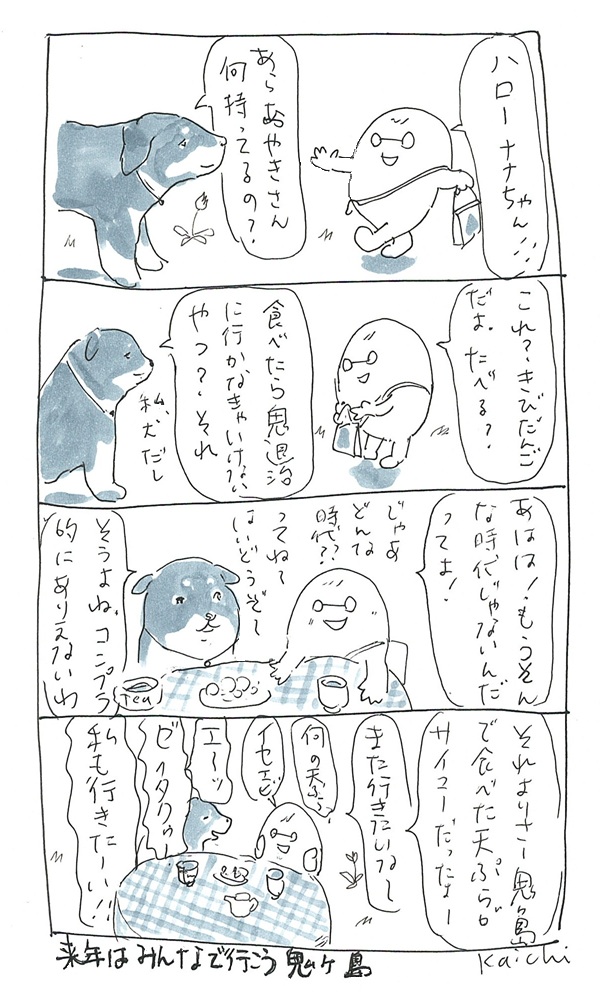 ハローナナちゃん!!
あらあやきさん
何持ってるの?
これ?きびだんご
だよ。たべる?
食べたら鬼退治
に行かなきゃいけない
やつ?それ
私、犬だし
あはは!もうそん
な時代じゃないんだ
ってよ!
じゃあ
どんな
時代??
ってね〜
はいどうぞ〜
そうよね。コンプラ
的にありえないわ
Tea
それよりさー鬼ヶ島
で食べた天ぷらが
サイコーだったよー
また行きたいな〜
何の天ぷら?
イセエビ
エーッ
ゼイタクゥー
私も行きたーい!!
来年はみんなで行こう鬼ヶ島
Kaichi